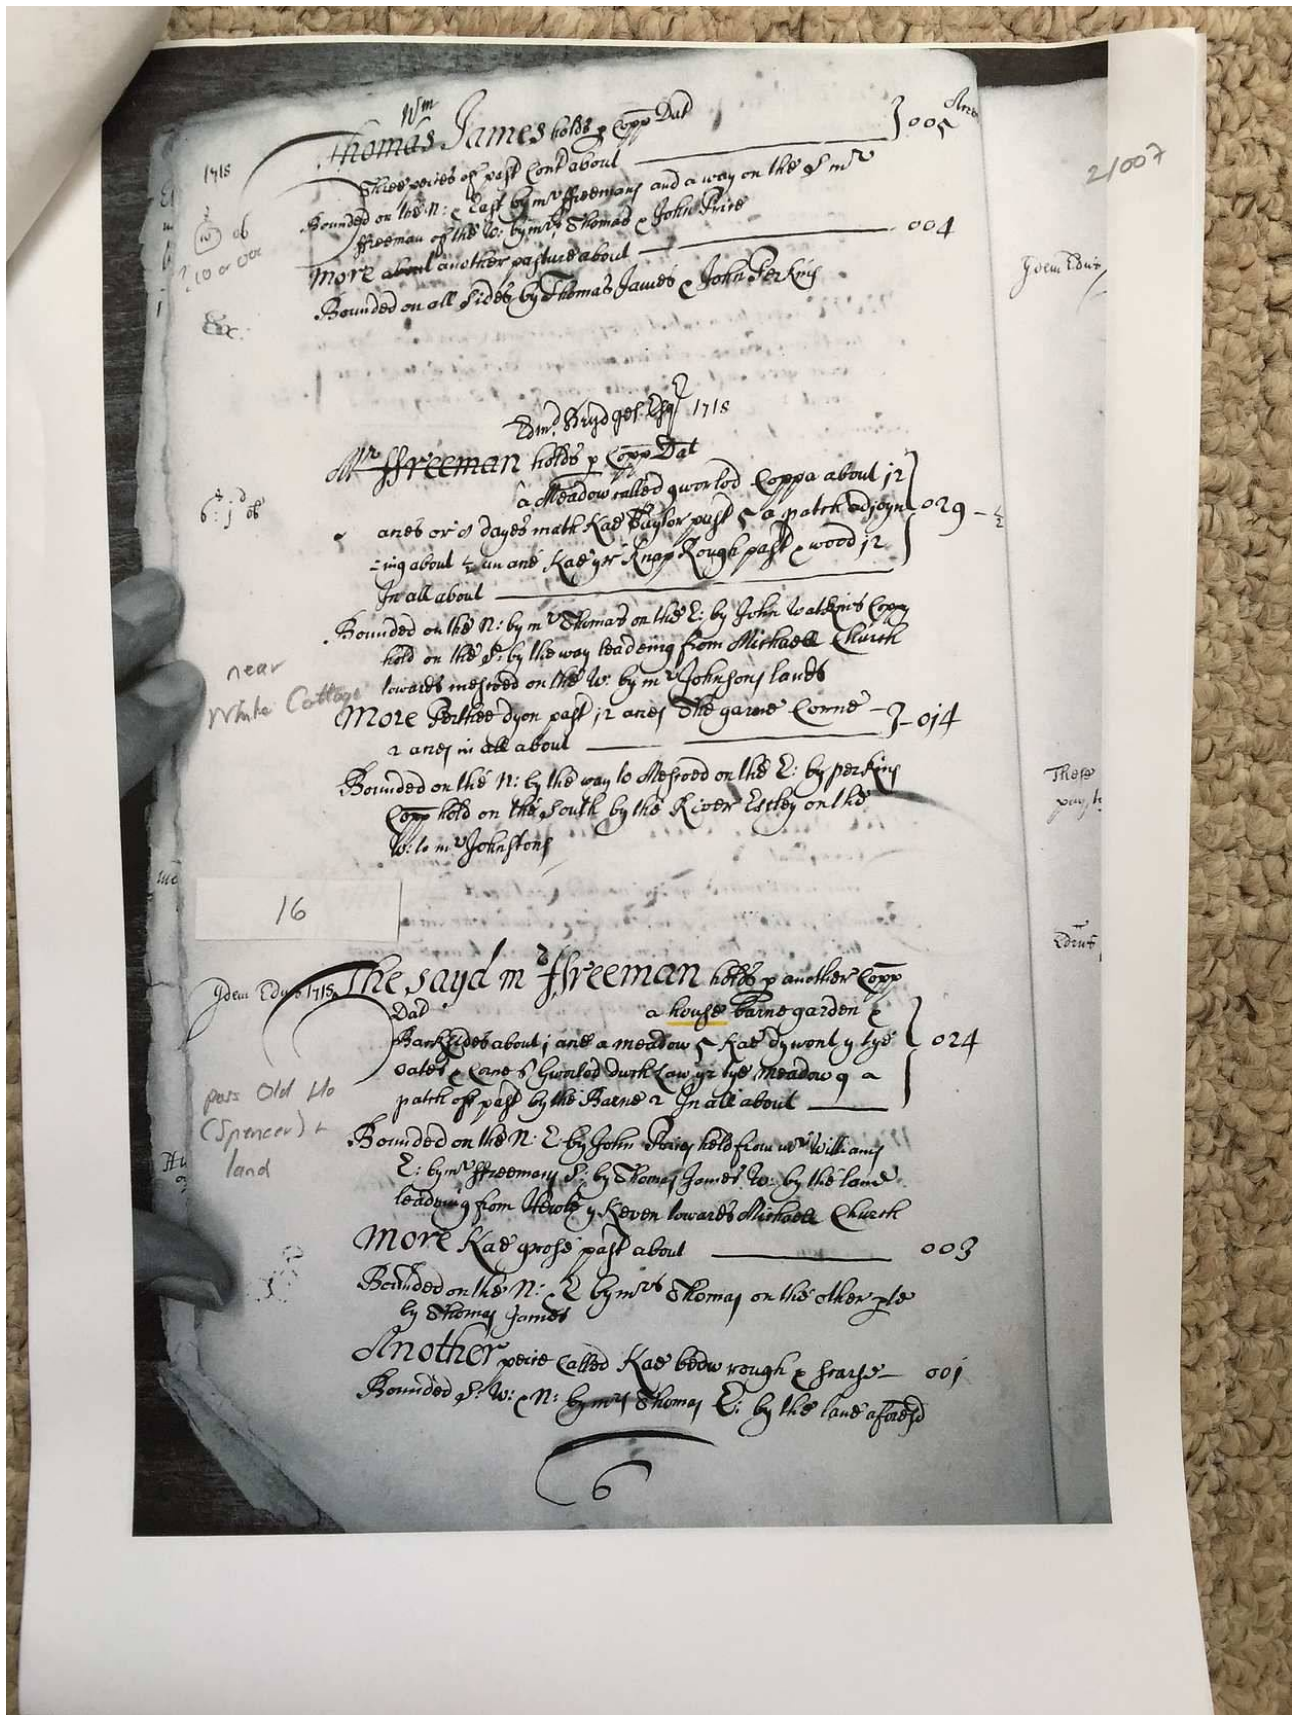 Wm
Thomas James holds p Copp Dat
Acres
1718
Three peices of past Cont about 005
21007
Bounded on the N: & East by mr ffreemans and a way on the S mr
ffreeman of the W: by mrs Thomas & John Price
ob
? 10 or 00
More about another pasture about 004
Idem Edws
Bounded on all Sides by Thomas James & John Perkins
Edmd Brydges Esqr 1718
Mr ffreeman holds p Copp Dat
a Meadow called gworlod Coppa about 12
6s: 1d ob
acres or 8 dayes math Kae Taylor past 5 a patch adjoyn 029 - ½
-ing about ½ an acre Kae yr Knap Rough past & wood 12
In all about
Bounded on the N: by mr Thomas on the E: by John Watkins Copy
hold on the S: by the way leadeing from Michaell Church
near
White Cottage
towards mesroed on the W: by mr Johnsons lands
More Perthee dyon past 12 acres The garne Corne 014
2 acres in all about
Bounded on the N: by the way to Mesroed on the E: by perkins
These
pay
Copp hold on the South by the River Estley on the
W: to mr Johnstons
16
Edws
The sayd mr ffreeman holds p another Copp
Idem Edws 1718
Dat a house barne garden &
Backsides about 1 acre a meadow 5 Kae dywont y tye 024
oates & Corne 8 Gworlod durk Law yr tye meadow 9 a
patch of past by the Barne 2 In all about
poss Old Ho
(Spencer) +
land
Bounded on the N: E: by John Prices held from mr Williams
E: by mr ffreemans S: by Thomas James W: by the lane
leadeing from y Keven towards Michaell Church
More Kae grose past about 003
Bounded on the N: & E by mrs Thomas on the other pte
by Thomas James
Another peice Called Kae bedw rough & scarse 001
Bounded S: W: & N: by mrs Thomas E: by the lane aforesd
6